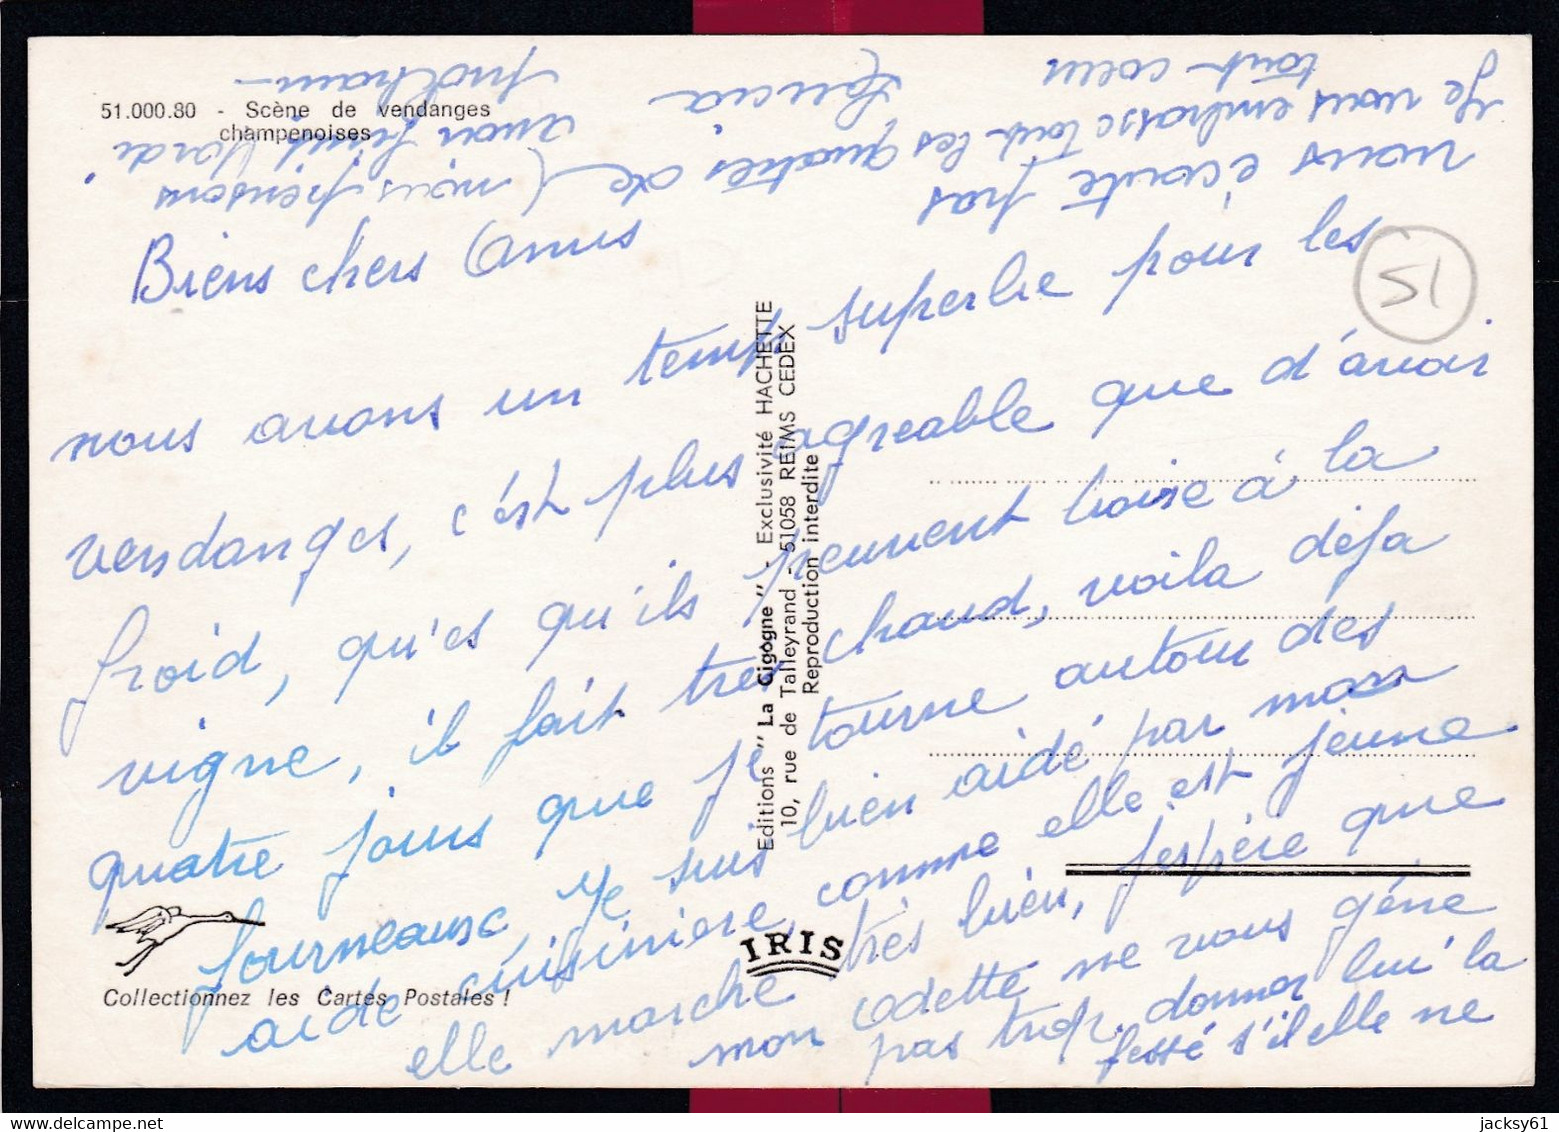 51.000.80 - Scène de vendanges
champenoises
Biens chers Amis
nous avons un temps superbe pour les
vendanges, c'est plus agreable que d'avoir
froid, qu'es qu'ils peuvent boire à la
vigne, il fait tres chaud, voila déja
quatre jours que je tourne autour des
fourneausc, je suis bien aidé par mon
aide cuisiniere, comme elle est jeune
elle marche très bien, j'espère que
mon odette ne vous gène
pas trop. donner lui la
fessé s'il elle ne
vous écoute pas
Je vous embrasse tous les quatres de
tout coeur
Lucia
(nous pensons
avoir finit Mardi
prochain -
51
Editions "La Cigogne" - Exclusivité HACHETTE
10, rue de Talleyrand - 51058 REIMS CEDEX
Reproduction interdite
IRIS
Collectionnez les Cartes Postales !
jacksy61